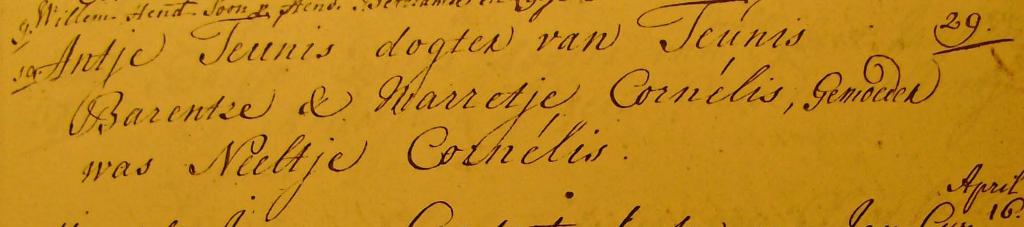 9. Willem. Hend. Soon v. Hend.
10. Antje Teunis dogter van Teúnis 29.
Barentze & Marretje Cornélis, Gemoeder
was Neeltje Cornélis.
April
16.